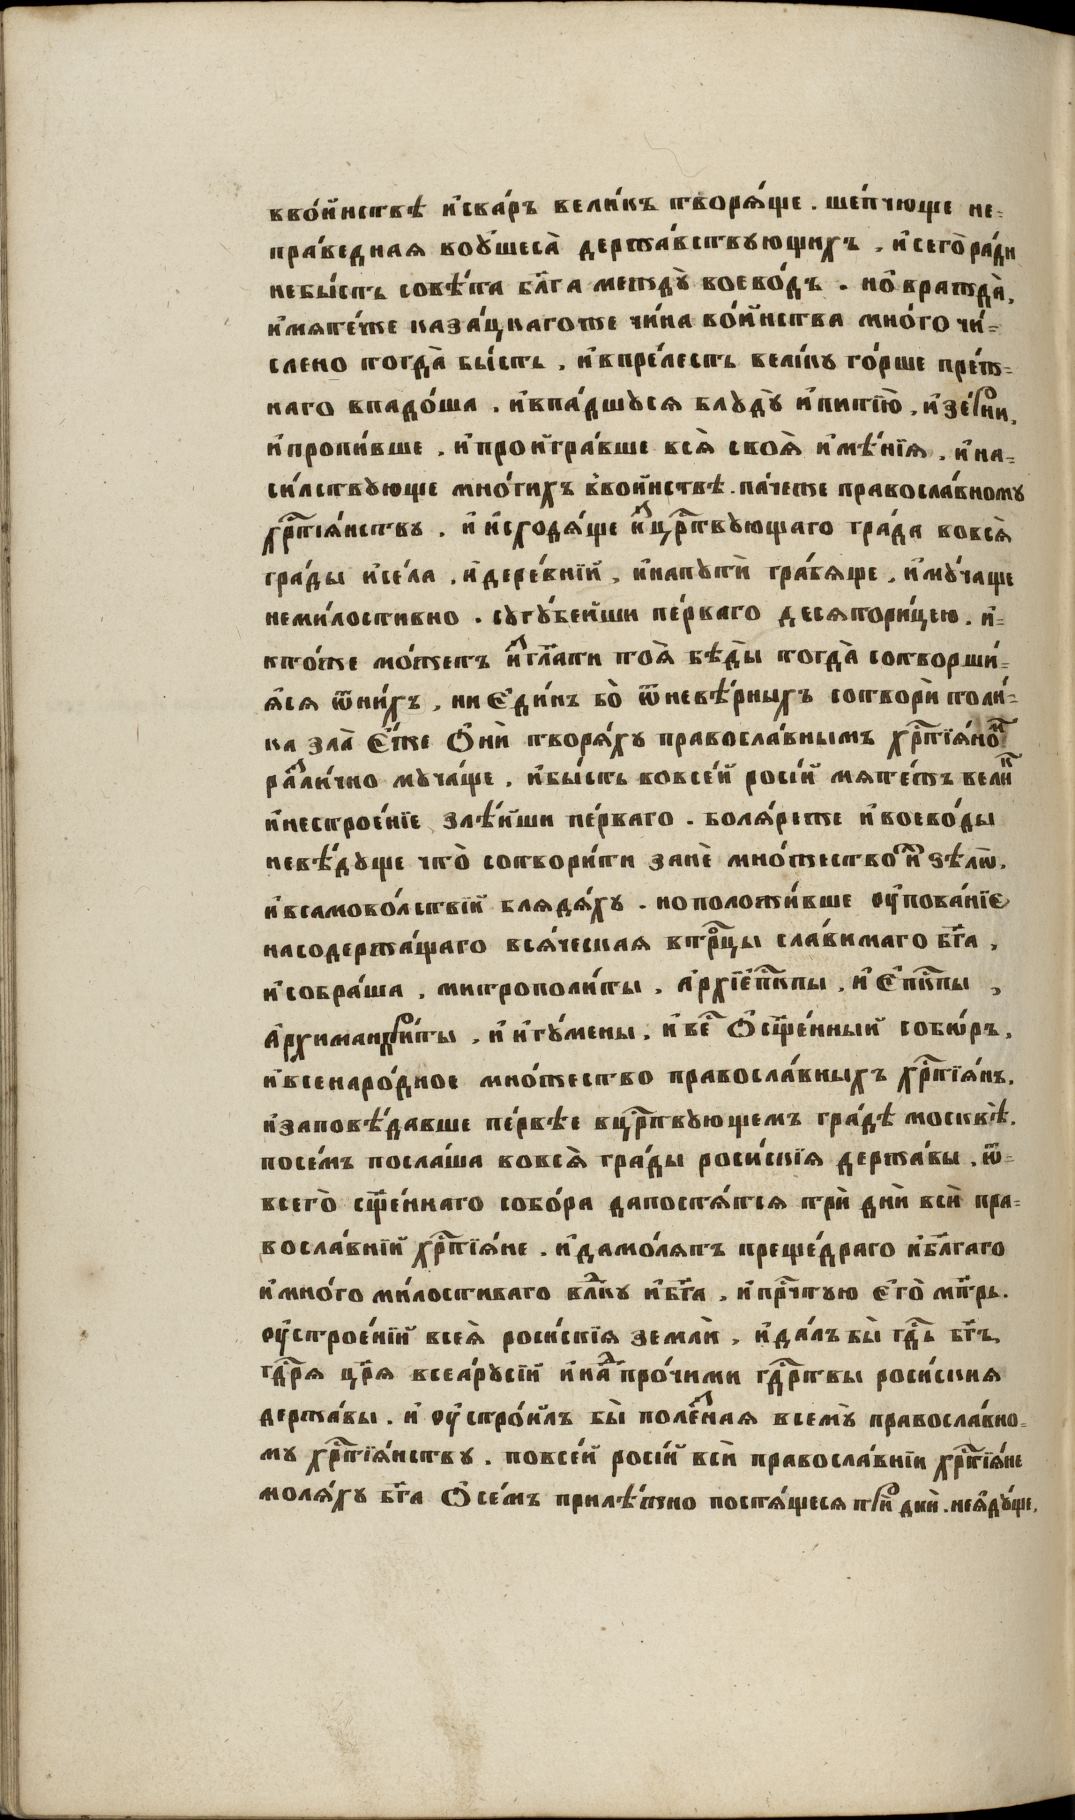 квóйнствѣ и҆сва́ръ вели́къ творѧ́ще . ше́пчюще не=
пра́веднаѧ воу҆́шеса̀ держа́вствующихъ , и҆сегѡ̀ ра́ди
небы́сть совѣ́та бл҃га междꙋ̀ воево́дъ . но̑ вражда̀ ,
и҆мѧте́же каза́цкагоже чи́на во́йнства мно́го чи́=
слено тогда̀ бы́сть , и҆впре́лесть вели́кꙋ го́рше пре́ж=
наго впадо́ша . и҆впа́дшꙋсѧ блꙋдꙋ̀ и҆питїю̀ , и҆зе́рни ,
и҆пропи́вше . и҆прои҆гра́вше всѧ̀ своѧ̀ и҆мѣ́нїѧ . и҆на=
си́лствꙋюще мно́гихъ в̾войнствѣ . па́чеже правосла́вномꙋ
хрⷭ҇тїѧ́нствꙋ . и҆ и҆сходѧ́ще и҆з̾црⷭ҇твꙋющаго гра́да вовсѧ̀
гра́ды и҆се́ла , и҆дере́внїй , и҆напꙋтѝ гра́бѧще , и҆мꙋ́чаще
неми́лостивно . сꙋгꙋ́бейши пе́рваго десѧторицею . и҆=
кто́же мо́жетъ и҆з̾гл҃ати тоѧ̀ бѣды̀ тогда̀ сотворши́=
ѧ҆сѧ ѿни́хъ , ни є҆ди́нъ бо̀ ѿневѣ́рныхъ сотворѝ толи́=
ка зла̀ є҆́же ѻ҆нѝ творѧ́хꙋ правосла́внымъ хрⷭ҇тїѧ́номⷨ
раⷥли́чно мꙋча́ще , и҆бы́сть вовсе́й росі́й мѧте́жъ велиⷦ҇
и҆нестрое́нїе ѕлѣ́йши пе́рваго . болѧ́реже и҆воево́ды
невѣ́дꙋще что̀ сотвори́ти занѐ мно́жествоⷨ и҆х̾ ѕѣлѡ̀ .
и҆всамово́лствїй блѧдѧ́хꙋ . ноположи́вше оу҆пова́нїе
насодержа́щаго всѧ́ческаѧ втрⷪ҇цы сла́вимаго бг҃а ,
и҆собра́ша , митрополи́ты , а҆рхїепⷭ҇кпы , и҆ є҆пⷭ҇кпы ,
а҆рхимандри́ты , и҆ и҆гꙋ́мены , и҆ веⷭ҇ ѻ҆сщ҃е́нный собѡ́ръ ,
и҆всенаро́дное мно́жество правосла́вныхъ хрⷭ҇тїѧ́нъ .
и҆заповѣ́давше пе́рвѣе вцрⷭ҇твꙋющемъ гра́дѣ москвѣ̀ .
посе́мъ посла́ша вовсѧ̀ гра́ды роси́скїѧ держа́вы , ѿ=
всегѡ̀ сщ҃е́ннаго собо́ра дапостѧ́тсѧ трѝ днѝ всѝ пра=
восла́внїй хрⷭ҇тїѧ́не . и҆дамо́лѧтъ преще́драго и҆бл҃гаго
и҆мно́го ми́лостиваго влⷣкꙋ и҆бг҃а , и҆прⷱ҇тꙋю є҆гѡ̀ мт҃рь .
оу҆строе́нїй всеѧ̀ роси́скїѧ землѝ , и҆да́лъ бы̀ гдⷭ҇ь бг҃ъ
гдⷭ҇рѧ цр҃ѧ всеарꙋсі́й и҆наⷣ про́чими гдⷭ҇рⷭ҇твы роси́скиѧ
держа́вы . и҆ оу҆стро́илъ бы̀ поле́зⷥнаѧ всемꙋ̀ правосла́вно=
мꙋ хрⷭ҇тїѧ́нствꙋ . повсе́й росі́й всѝ правосла́внїи хрⷭ҇тїѧ́не
молѧ́хꙋ бг҃а ѻ҆ се́мъ прилѣ́жно постѧ́щесѧ трѝ днѝ . неѧ҆дꙋ́ще ,